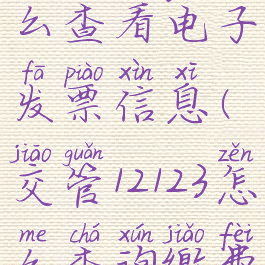 么查看电子
fā piào xìn xī
发票信息(
jiāo guǎn zěn
交管12123怎
me chá xún jiǎo fèi
么查询缴费